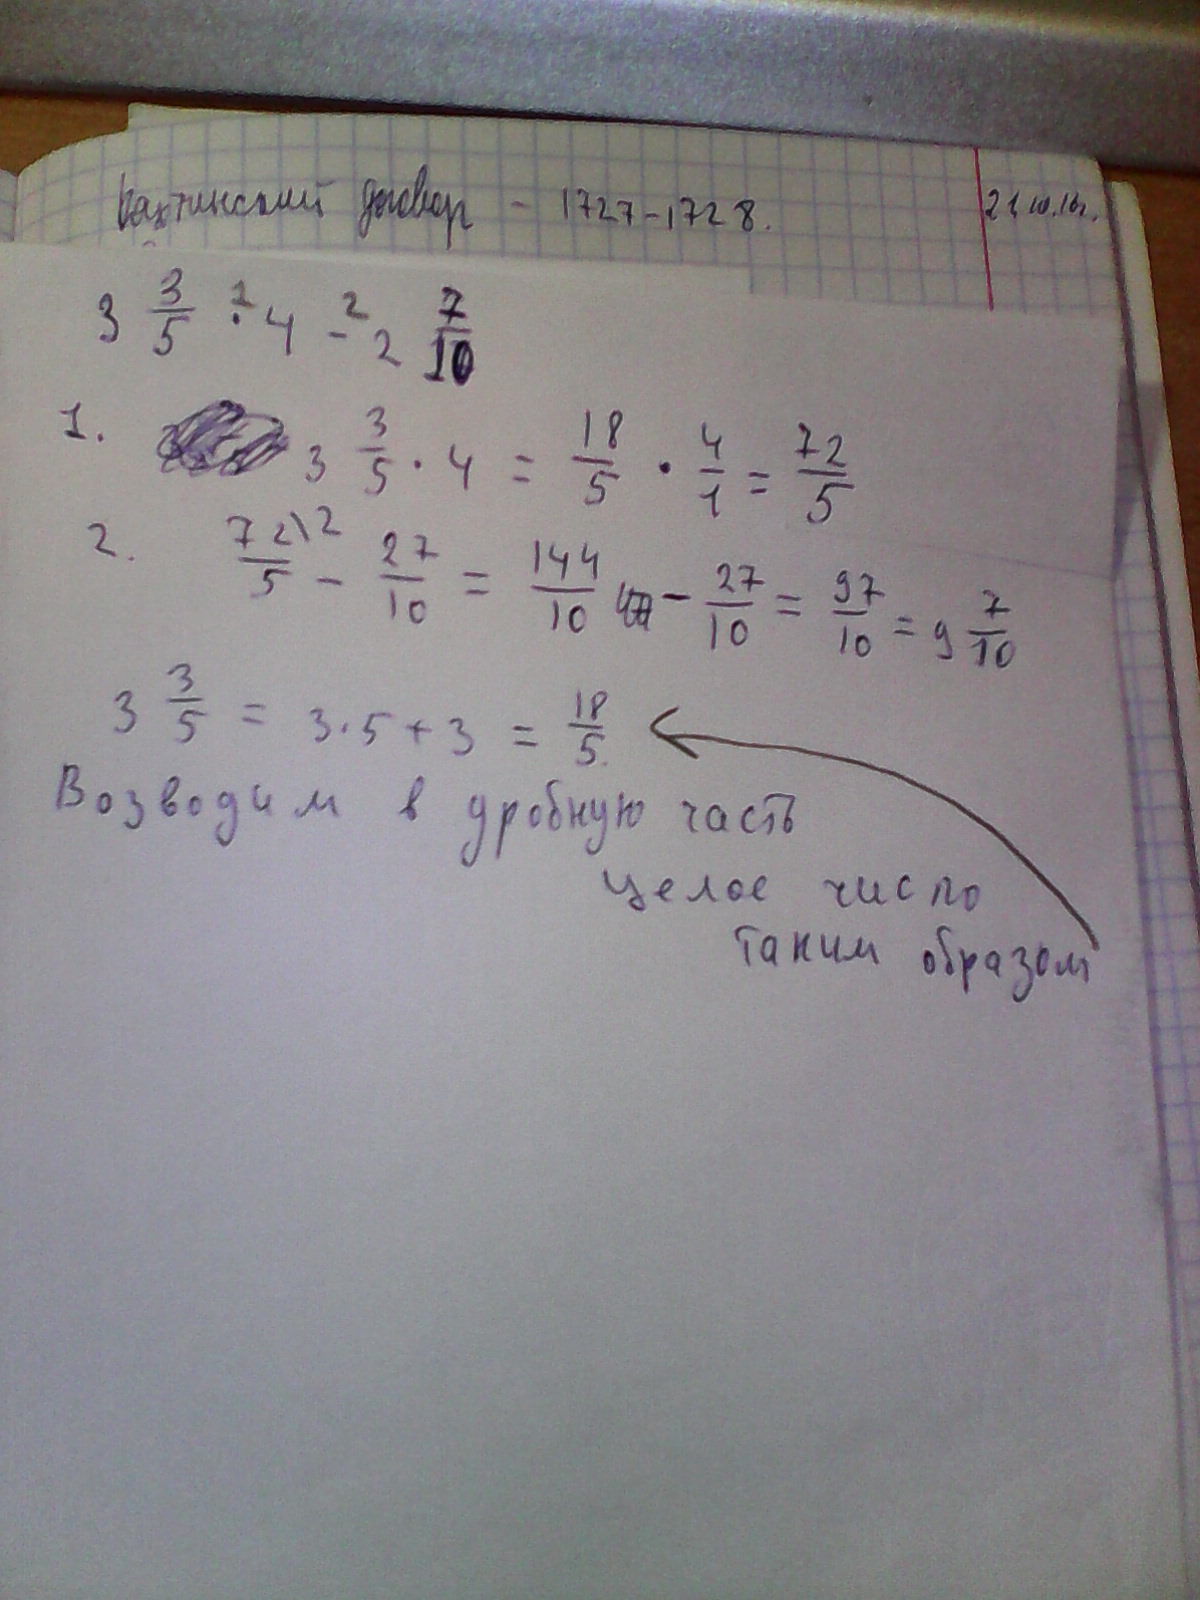 Кяхтинский договор - 1727-1728. 21.10.16г.
3 3/5 ·¹ 4 -² 2 7/10
1. 3 3/5 · 4 = 18/5 · 4/1 = 72/5
2. 72\2/5 - 27/10 = 144/10 - 27/10 = 97/10 = 9 7/10
3 3/5 = 3·5+3 = 18/5
Возводим в дробную часть
целое число
таким образом